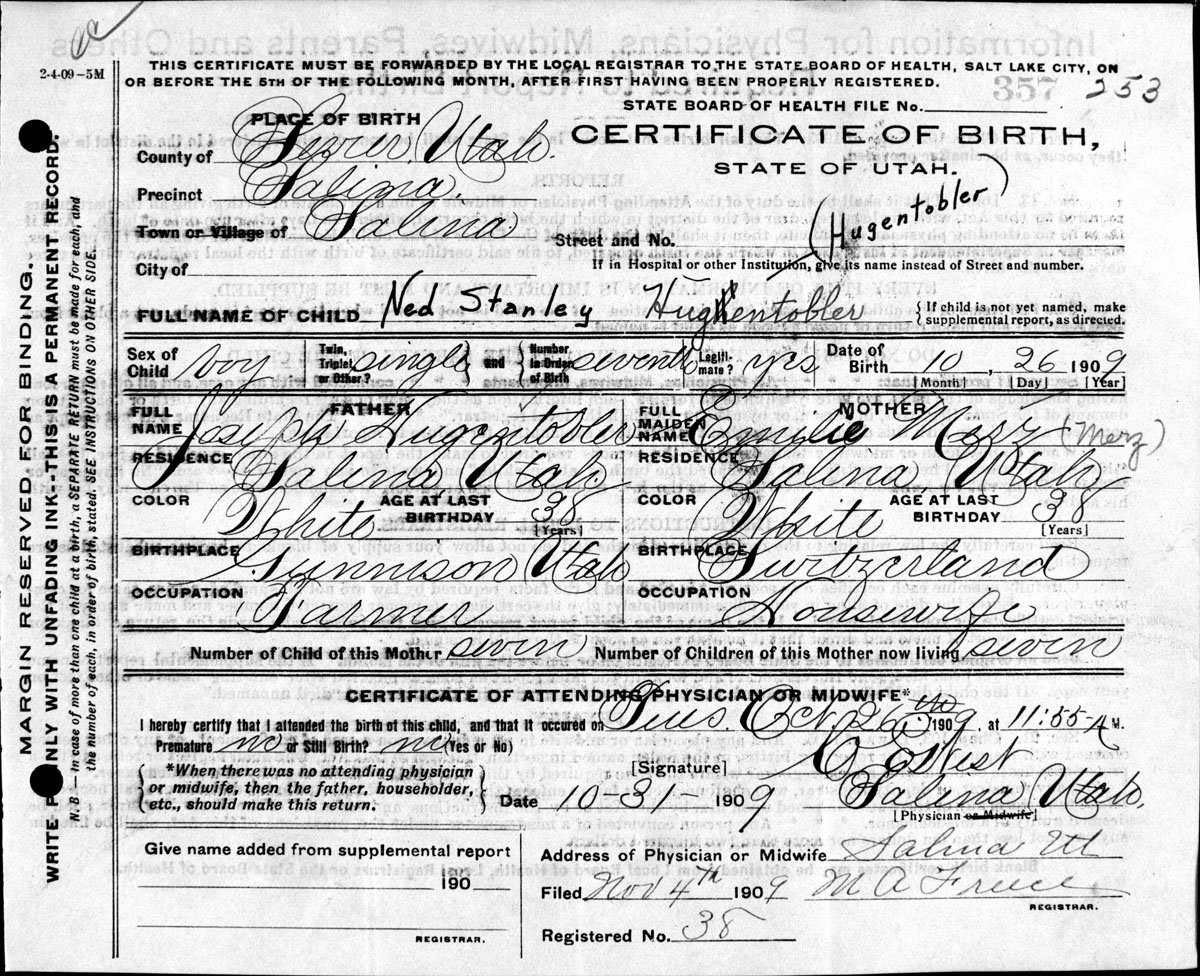 2-4-09-5M
THIS CERTIFICATE MUST BE FORWARDED BY THE LOCAL REGISTRAR TO THE STATE BOARD OF HEALTH, SALT LAKE CITY, ON
OR BEFORE THE 5TH OF THE FOLLOWING MONTH, AFTER FIRST HAVING BEEN PROPERLY REGISTERED.
357
253
STATE BOARD OF HEALTH FILE No.
PLACE OF BIRTH
CERTIFICATE OF BIRTH,
STATE OF UTAH.
County of Sevier, Utah.
Precinct Salina.
Town or Village of Salina
Street and No.
(Hugentobler)
City of
If in Hospital or other Institution, give its name instead of Street and number.
FULL NAME OF CHILD Ned Stanley Hughentobler
{If child is not yet named, make supplemental report, as directed.
Sex of Child boy Twin, Triplet or Other? single and Number in Order of Birth seventh Legiti-mate? yes Date of Birth 10, 26 1909
[Month] [Day] [Year]
FATHER MOTHER
FULL NAME Joseph Hugentobler FULL MAIDEN NAME Emilie Merz (Merz)
RESIDENCE Salina Utah RESIDENCE Salina Utah
COLOR White AGE AT LAST BIRTHDAY 38 [Years] COLOR White AGE AT LAST BIRTHDAY 38 [Years]
BIRTHPLACE Gunnison Utah BIRTHPLACE Switzerland
OCCUPATION Farmer OCCUPATION Housewife
Number of Child of this Mother seven Number of Children of this Mother now living seven
CERTIFICATE OF ATTENDING PHYSICIAN OR MIDWIFE*
I hereby certify that I attended the birth of this child, and that it occured on Tues. Oct. 26 1909, at 11:55 A M.
Premature no or Still Birth? no (Yes or No)
*When there was no attending physician or midwife, then the father, householder, etc., should make this return.
[Signature] West
Date 10-31 1909 Salina, Utah.
[Physician or Midwife]
Give name added from supplemental report
190
REGISTRAR.
Address of Physician or Midwife Salina Ut
Filed Nov 4th 1909
REGISTRAR.
Registered No. 38
MARGIN RESERVED FOR BINDING.
WRITE ONLY WITH UNFADING INK--THIS IS A PERMANENT RECORD.
N. B.--In case of more than one child at a birth, a SEPARATE RETURN must be made for each, and
the number of each, in order of birth, stated. SEE INSTRUCTIONS ON OTHER SIDE.